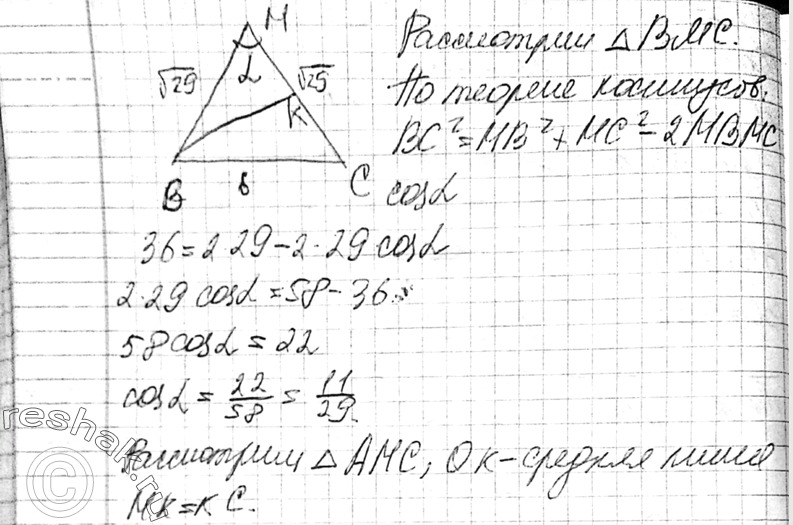 M
√29 α √29
K
B 6 C
Рассмотрим △ BMC.
По теореме косинусов:
BC² = MB² + MC² - 2MBMC
cosα
36 = 2·29 - 2·29 cosα
2·29 cosα = 58 - 36
58 cosα = 22
cosα = 22/58 = 11/29.
Рассмотрим △ AMC, OK - средняя линия
MK = KC.
reshak.ru
©